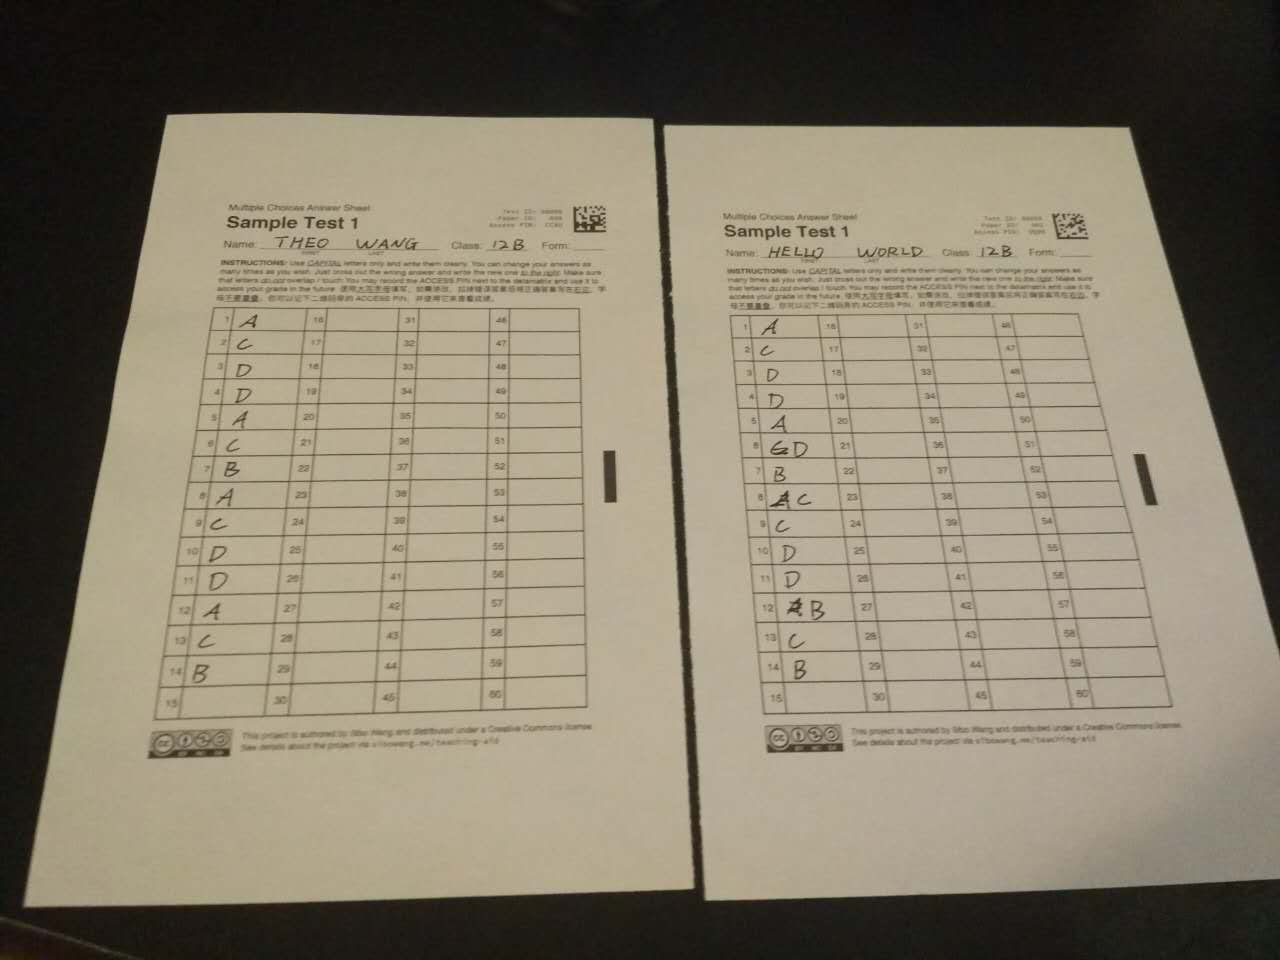 Multiple Choices Answer Sheet
Sample Test 1
Name: THEO WANG Class: 12B Form:
FIRST LAST
INSTRUCTIONS: Use CAPITAL letters only and write them clearly. You can change your answers as
many times as you wish. Just cross out the wrong answer and write the new one to the right. Make sure
that letters do not overlap / touch. You may record the ACCESS PIN next to the datamatrix and use it to
access your grade in the future. 使用大写字母填写，如需修改，
字母不要重叠。你可以记下二维码旁的 ACCESS PIN，并使用它来查看成绩。
1 A 16 31 46
2 C 17 32 47
3 D 18 33 48
4 D 19 34 49
5 A 20 35 50
6 C 21 36 51
7 B 22 37 52
8 A 23 38 53
9 C 24 39 54
10 D 25 40 55
11 D 26 41 56
12 A 27 42 57
13 C 28 43 58
14 B 29 44 59
15 30 45 60
This project is authored by Sibo Wang and distributed under a Creative Commons license.
See details about the project via sibowang.me/teaching-aid
Multiple Choices Answer Sheet
Sample Test 1
Name: HELLO WORLD Class: 12B Form:
FIRST LAST
INSTRUCTIONS: Use CAPITAL letters only and write them clearly. You can change your answers as
many times as you wish. Just cross out the wrong answer and write the new one to the right. Make sure
that letters do not overlap / touch. You may record the ACCESS PIN next to the datamatrix and use it to
access your grade in the future. 使用大写字母填写，如需修改，
字母不要重叠。你可以记下二维码旁的 ACCESS PIN，并使用它来查看成绩。
1 A 16 31 46
2 C 17 32 47
3 D 18 33 48
4 D 19 34 49
5 A 20 35 50
6 C D 21 36 51
7 B 22 37 52
8 A C 23 38 53
9 C 24 39 54
10 D 25 40 55
11 D 26 41 56
12 A B 27 42 57
13 C 28 43 58
14 B 29 44 59
15 30 45 60
This project is authored by Sibo Wang and distributed under a Creative Commons license.
See details about the project via sibowang.me/teaching-aid